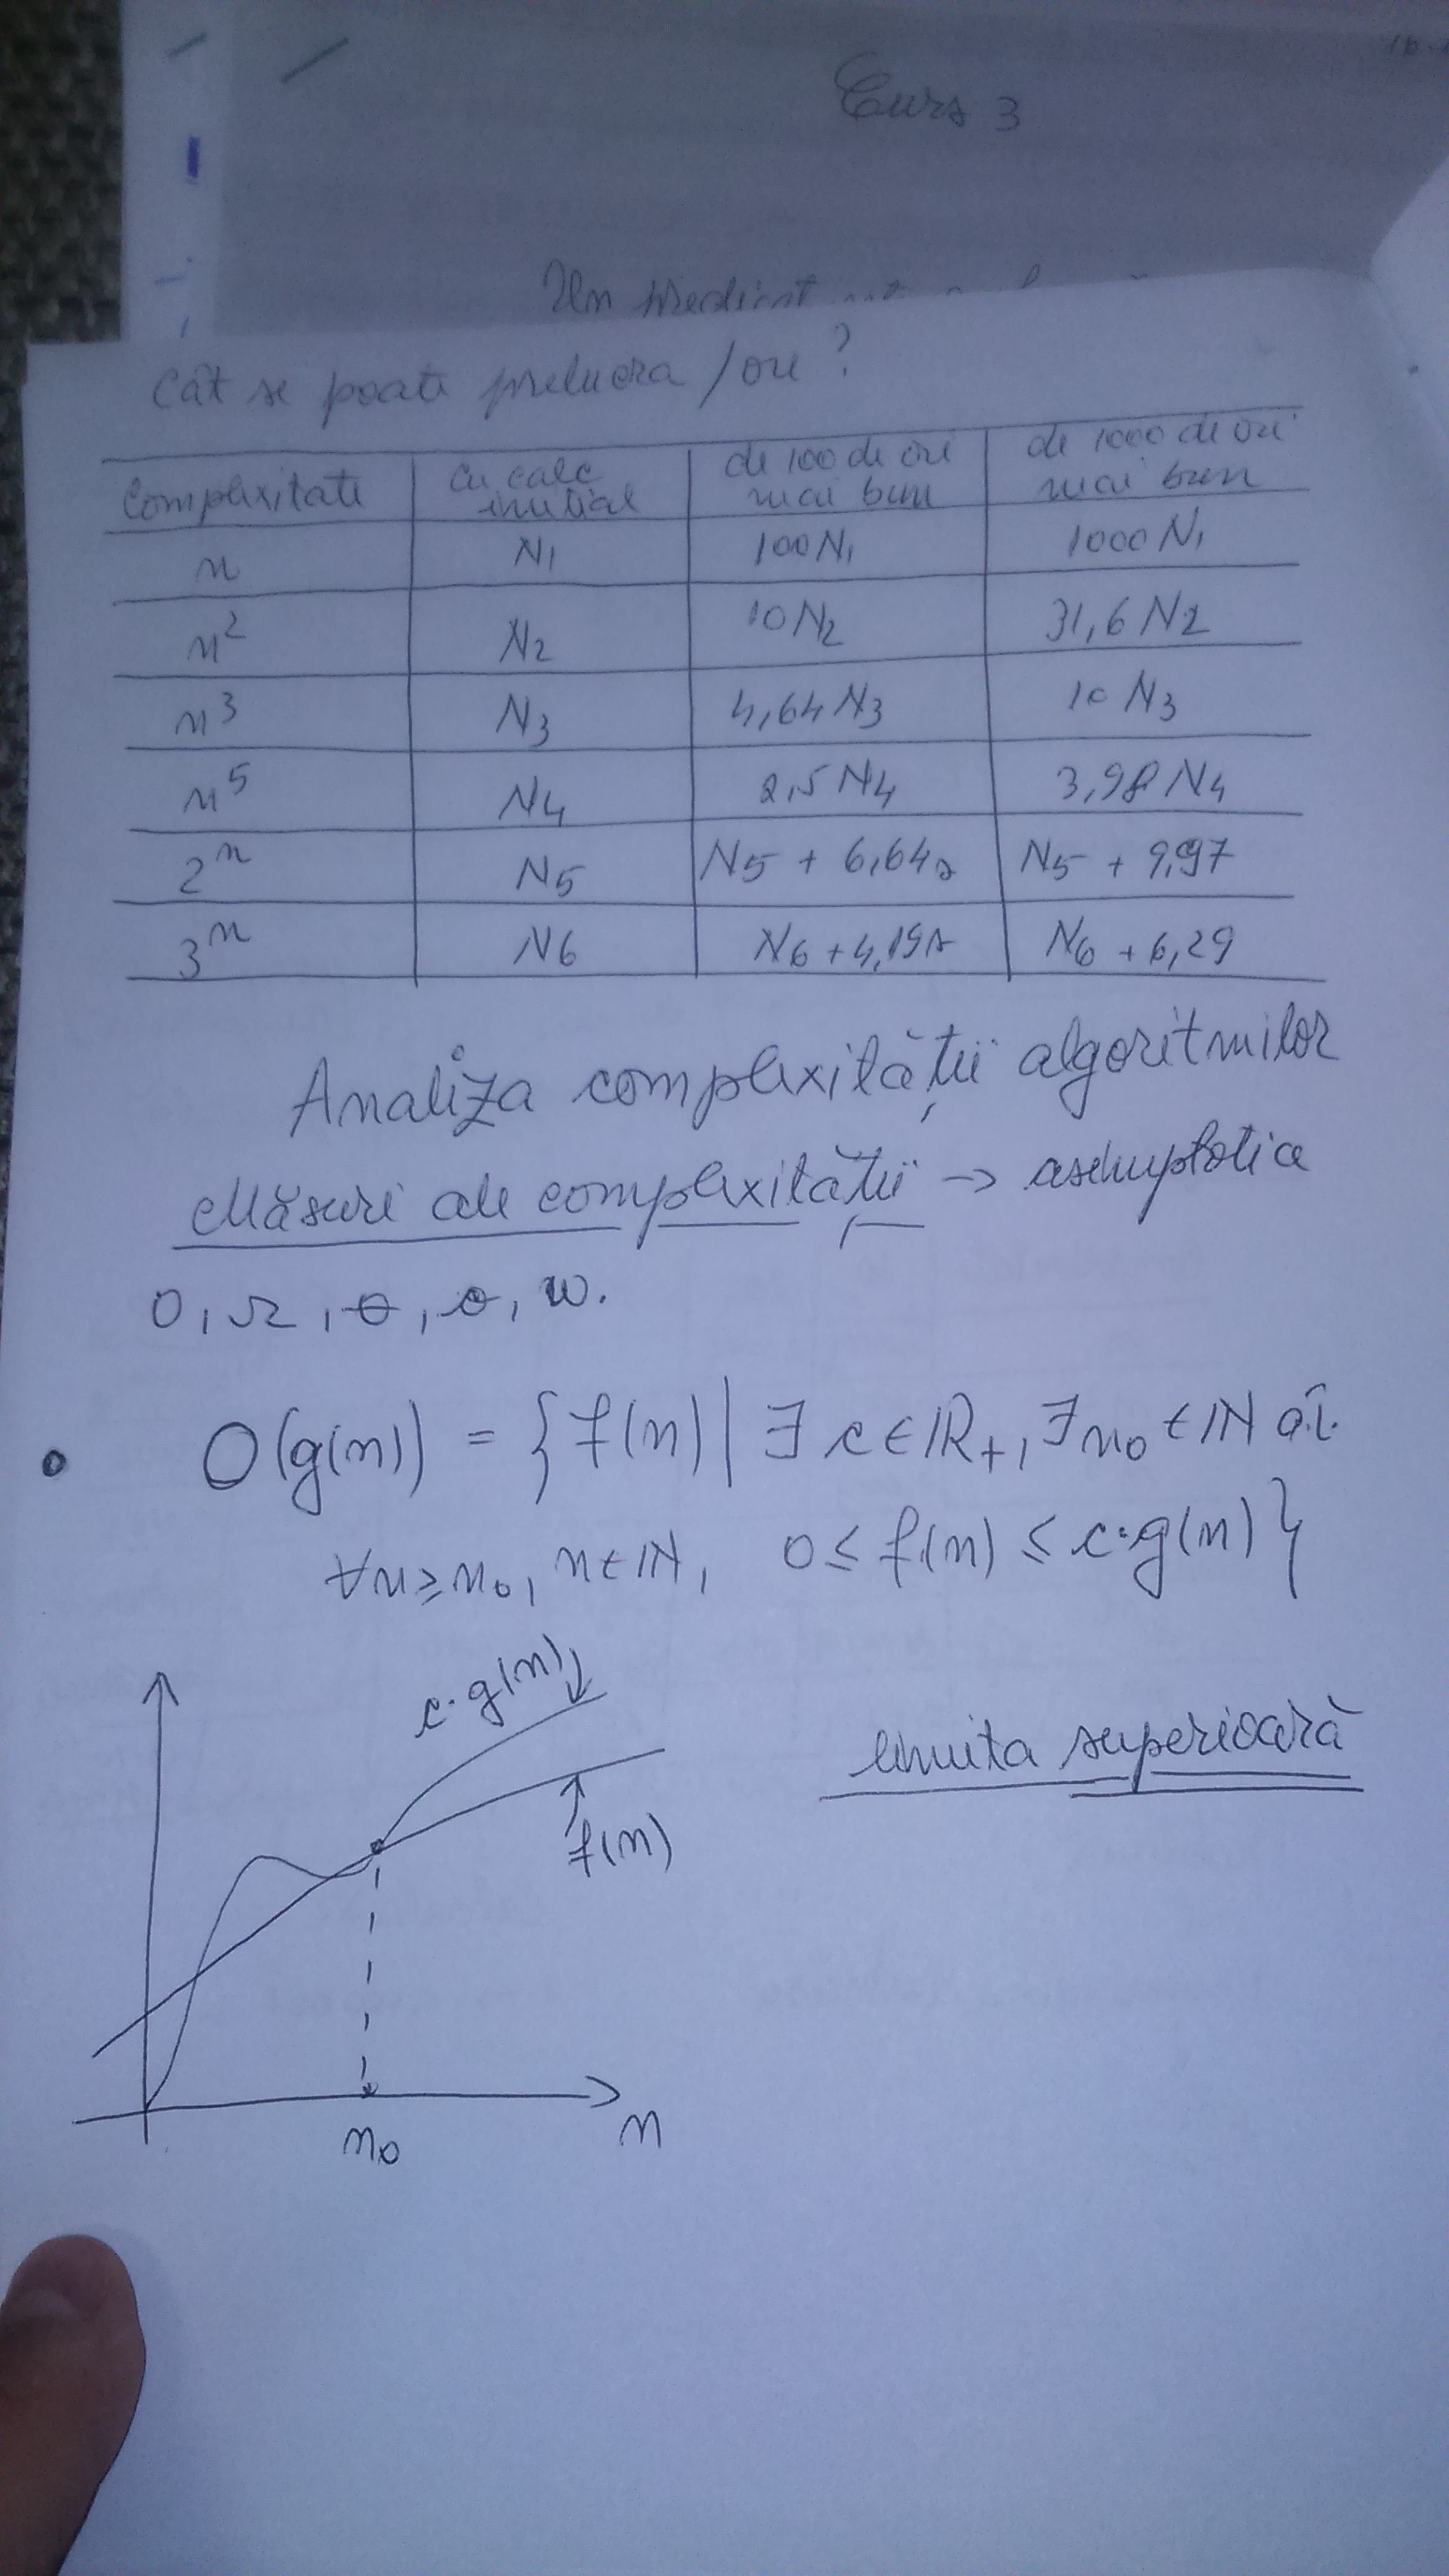 Curs 3
Un predicat
Cât se poate prelucra / ore ?
Complexitate | Cu calc initial | de 100 de ori mai bun | de 1000 de ori mai bun
n | N1 | 100N1 | 1000 N1
n² | N2 | 10N2 | 31,6 N2
n³ | N3 | 4,64 N3 | 10 N3
n⁵ | N4 | 2,5 N4 | 3,98 N4
2ⁿ | N5 | N5 + 6,64 | N5 + 9,97
3ⁿ | N6 | N6 + 4,19 | N6 + 6,29
Analiza complexității algoritmilor
Măsuri ale complexității → asimptotice
O, Ω, Θ, o, ω.
• O(g(n)) = {f(n) | ∃ c ∈ ℝ₊, ∃ n₀ ∈ ℕ a.î.
∀n ≥ n₀, n ∈ ℕ, 0 ≤ f(n) ≤ c·g(n)}
c·g(n)
limita superioară
f(n)
n₀
n